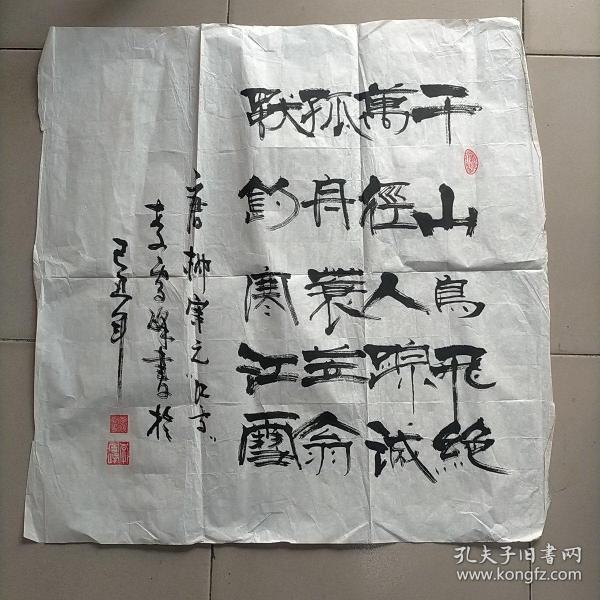 千山鳥飛絕
萬徑人踪滅
孤舟蓑笠翁
獨釣寒江雪
唐柳宗元江雪
李雪峰書於
己丑年
孔夫子旧书网
www.kongfz.com